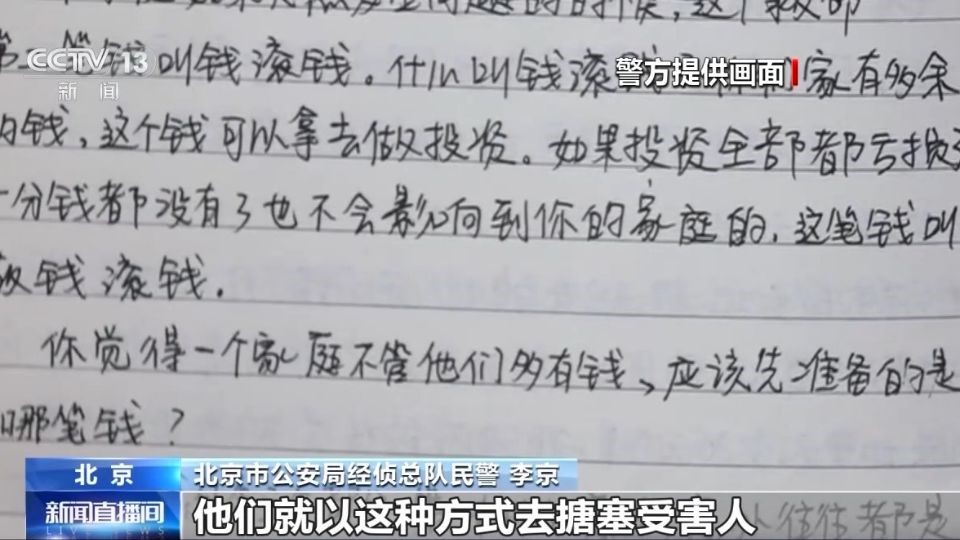 CCTV 13
新闻
警方提供画面
笔钱叫钱滚钱。什么叫钱滚 家有多余
的钱,这个钱可以拿去做投资。如果投资全部都亏损
一分钱都没有了也不会影响到你的家庭的,这笔钱叫
钱滚钱.
你觉得一个家庭不管他们多有钱、应该先准备的是
哪笔钱?
北京
北京市公安局经侦总队民警 李京
新闻直播间
他们就以这种方式去搪塞受害人
往往都是